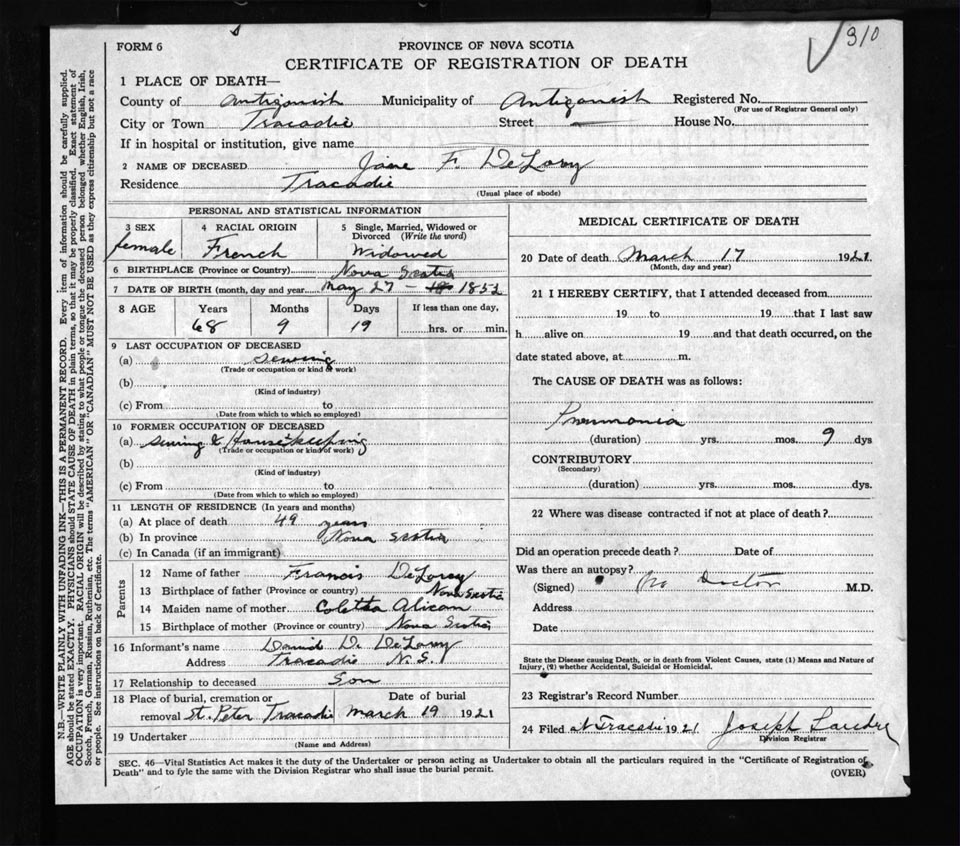 310
FORM 6
PROVINCE OF NOVA SCOTIA
CERTIFICATE OF REGISTRATION OF DEATH
1 PLACE OF DEATH—
County of Antigonish Municipality of Antigonish Registered No.
(For use of Registrar General only)
City or Town Tracadie Street — House No.
If in hospital or institution, give name
2 NAME OF DECEASED Jane F. DeLory
Residence Tracadie
(Usual place of abode)
PERSONAL AND STATISTICAL INFORMATION
3 SEX 4 RACIAL ORIGIN 5 Single, Married, Widowed or Divorced (Write the word)
female French Widowed
6 BIRTHPLACE (Province or Country) Nova Scotia
7 DATE OF BIRTH (month, day and year) May 27 - 1852
8 AGE Years Months Days If less than one day,
68 9 19 hrs. or min.
9 LAST OCCUPATION OF DECEASED
(a) sewing
(Trade or occupation or kind of work)
(b)
(Kind of industry)
(c) From to
(Date from which to which so employed)
10 FORMER OCCUPATION OF DECEASED
(a) sewing & Housekeeping
(Trade or occupation or kind of work)
(b)
(Kind of industry)
(c) From to
(Date from which to which so employed)
11 LENGTH OF RESIDENCE (In years and months)
(a) At place of death 49 years
(b) In province Nova Scotia
(c) In Canada (if an immigrant)
Parents
12 Name of father Francis DeLorey
13 Birthplace of father (Province or country) Nova Scotia
14 Maiden name of mother Coletta
15 Birthplace of mother (Province or country) Nova Scotia
16 Informant's name David D. DeLorey
Address Tracadie N.S.
17 Relationship to deceased Son
18 Place of burial, cremation or Date of burial
removal St. Peter Tracadie March 19 1921
19 Undertaker
(Name and Address)
MEDICAL CERTIFICATE OF DEATH
20 Date of death March 17 1921.
(Month, day and year)
21 I HEREBY CERTIFY, that I attended deceased from
19 to 19 that I last saw
h alive on 19 and that death occurred, on the
date stated above, at m.
The CAUSE OF DEATH was as follows:
Pneumonia
(duration) yrs. mos. 9 dys
CONTRIBUTORY
(Secondary)
(duration) yrs. mos. dys.
22 Where was disease contracted if not at place of death?
Did an operation precede death? Date of
Was there an autopsy?
(Signed) No Doctor M.D.
Address
Date
State the Disease causing Death, or in death from Violent Causes, state (1) Means and Nature of
Injury, (2) whether Accidental, Suicidal or Homicidal.
23 Registrar's Record Number
24 Filed at Tracadie 1921 Joseph Landry
Division Registrar
SEC. 46—Vital Statistics Act makes it the duty of the Undertaker or person acting as Undertaker to obtain all the particulars required in the "Certificate of Registration of
Death" and to fyle the same with the Division Registrar who shall issue the burial permit.
(OVER)
N.B.—WRITE PLAINLY WITH UNFADING INK—THIS IS A PERMANENT RECORD. Every item of information should be carefully supplied.
AGE should be stated EXACTLY. PHYSICIANS should STATE CAUSE OF DEATH in plain terms, so that it may be properly classified. Exact statement of
OCCUPATION is very important. RACIAL ORIGIN will be described by stating to what people or tongue the deceased person belonged whether English, Irish,
Scotch, French, German, Russian, Ruthenian, etc. The terms "AMERICAN" OR "CANADIAN" MUST NOT BE USED as they express citizenship but not a race
or people. See instructions on back of Certificate.